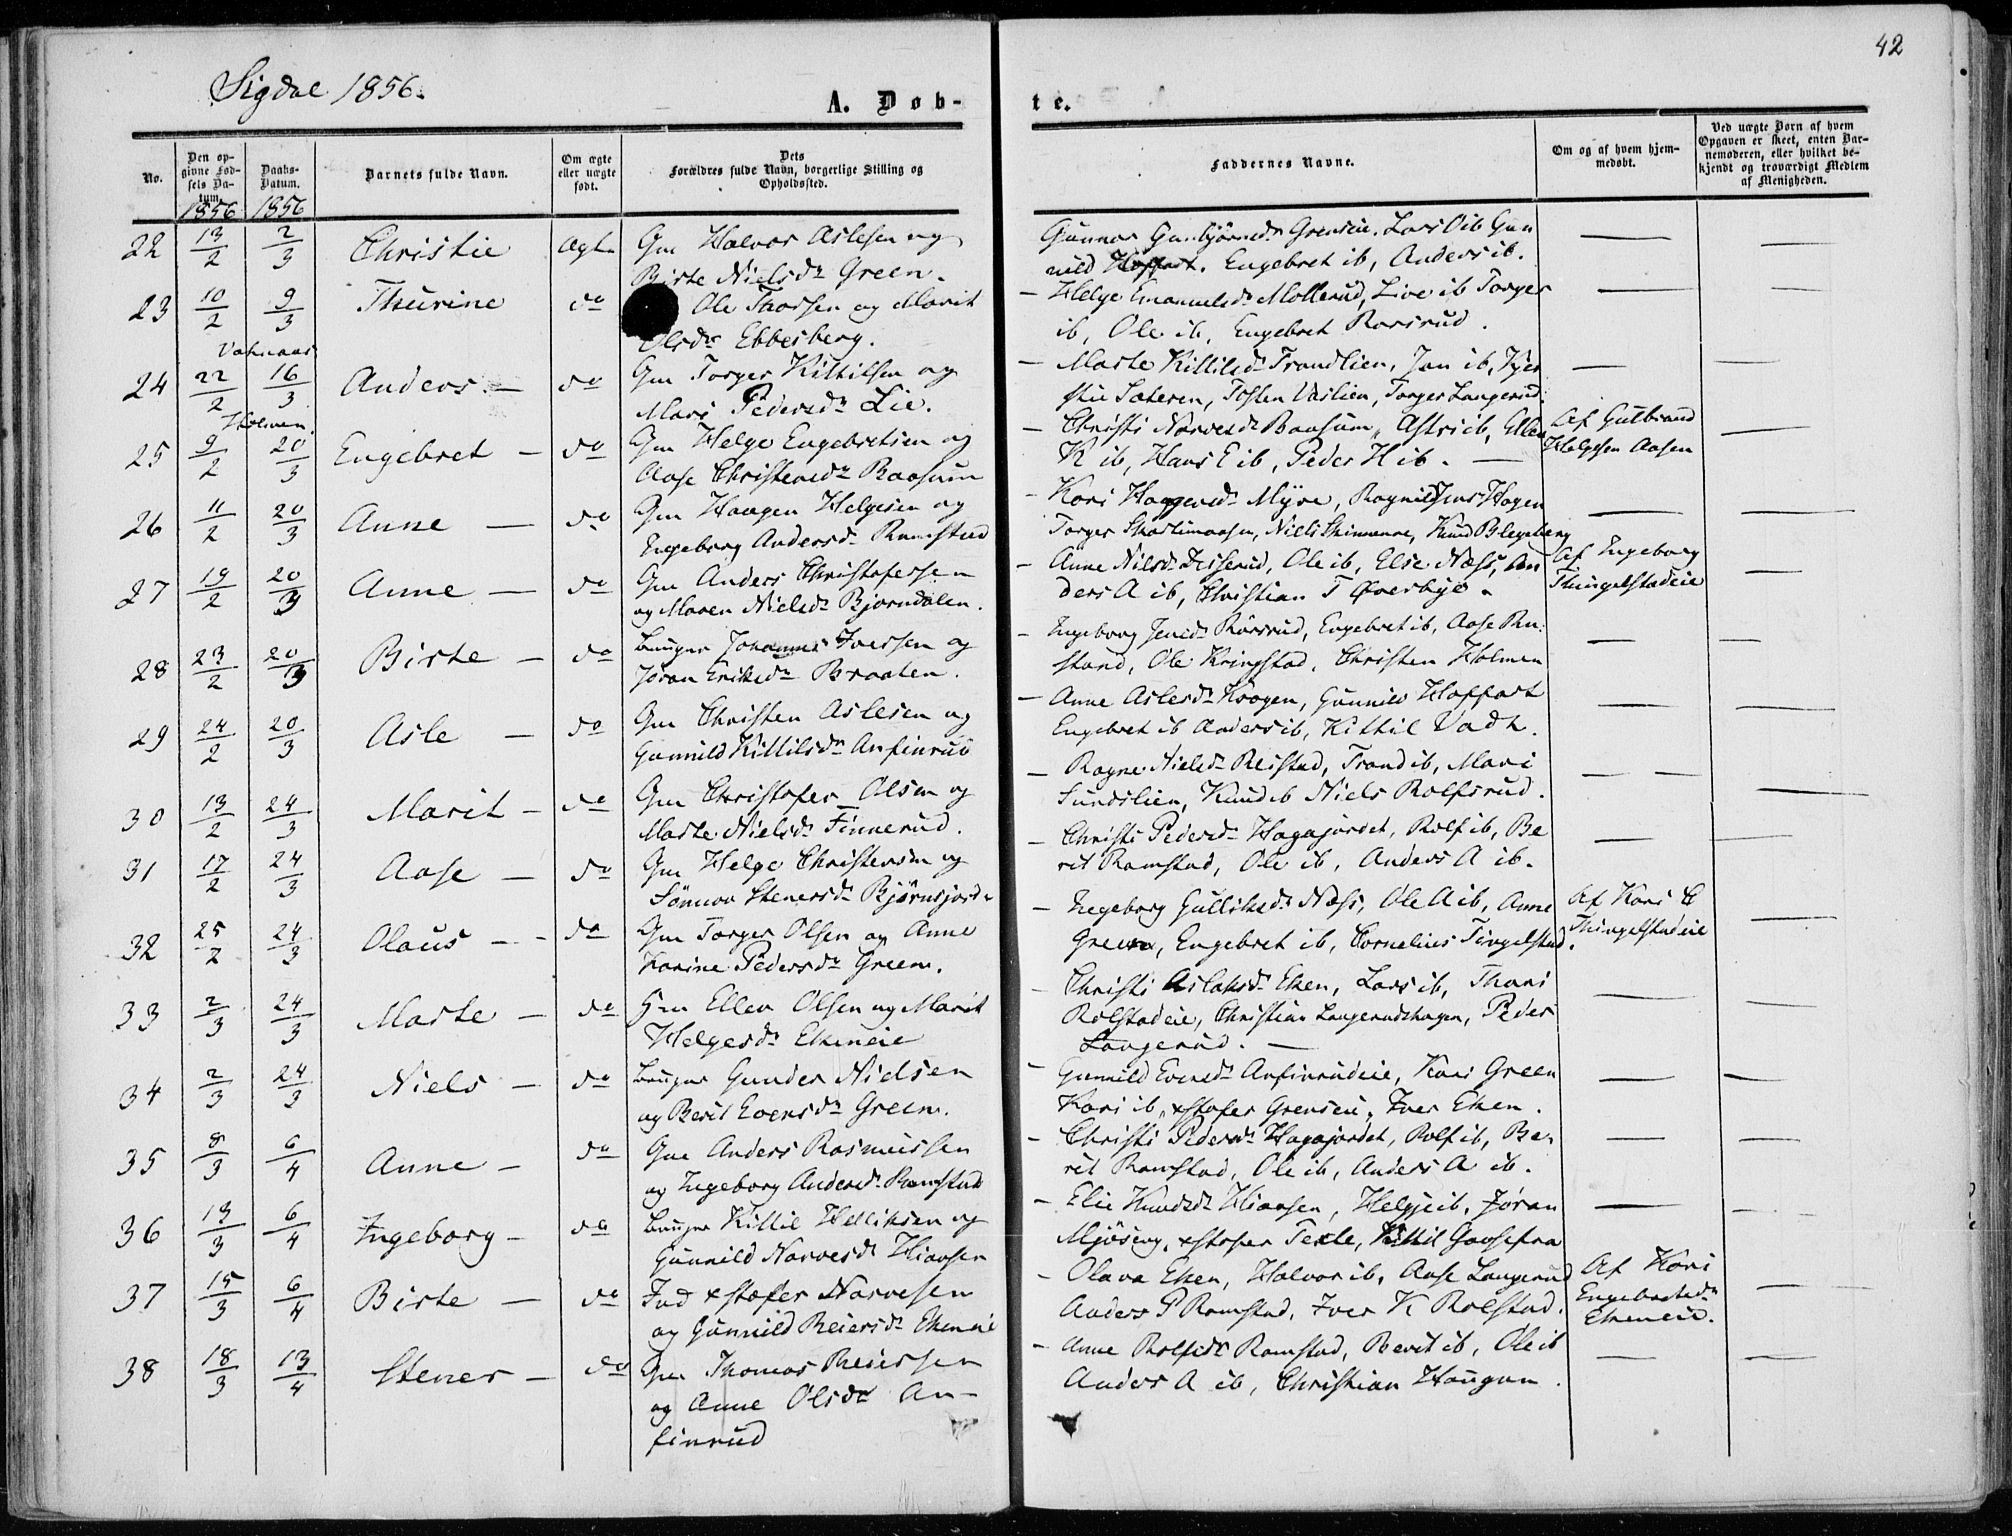 42
Sigdal 1856.
A. Døb-
te.
No.
Den op-
givne Fød-
sels Da-
tum.
1856
Daabs-
Datum.
1856
Barnets fulde Navn.
Om ægte
eller uægte
født.
Dets
Forældres fulde Navn, borgerlige Stilling og
Opholdssted.
Faddernes Navne.
Om og af hvem hjem-
medøbt.
Ved uægte Børn af hvem
Opgaven er skeet, enten Bar-
nemoderen, eller hvilket be-
kjendt og troværdigt Medlem
af Menigheden.
22 13/2 2/3 Christie Ægte Gm Halvor Aslesen og
Birte Nielsdr Green.
Gunnor Gunbjørnsdr Grenseie. Lars O ib Gun
nild Hoffart. Engebret ib, Anders ib.
23 10/2 9/3 Thurine do Ole Thorsen og Marit
Olsdr Ebbesberg.
- Helge Emanuelsdr Mollerud, Live ib Torger
ib, Ole ib, Engebret Rorsrud.
Vatnaas
24 22/2 16/3 Anders - do Gm Torger Kittilsen og
Mari Pedersdr Lie.
- Marte Kittilsdr Trondlien, Jan ib, Kjer
stie Sateren, Tosten Vaslien, Torger Langerud.
Holmen.
25 9/2 20/3 Engebret - do Gm Helge Engebretsen og
Aase Christensdr Baasum
- Christi Narvesdr Baasum, Astri ib, Ellen
K ib, Hans E ib, Peder H ib. -
Af Gulbrand
Helgesen Aasen
26 11/2 20/3 Anne - do Gm Haagen Helgesen og
Ingeborg Andersdr Ramstad
- Kari Haagensdr Myre, Ragnild Jens Hagen
Torger Skartumaasen, Niels Skinnenne, Knud Blegeberg
27 19/2 20/3 Anne - do Gm Anders Christofersen
og Maren Nielsdr Bjørndalen.
- Anne Nilsdr Fisserud, Ole ib, Else Næss, An
ders A ib, Christian T Øverbye.
Af Ingeborg
Thingelstadeie
28 23/2 20/3 Birte - do Bruger Johannes Iversen og
Jøran Eriksdr Braaten.
- Ingeborg Jensdr Rorsrud, Engebret ib, Aase Ru
stand, Ole Kringstad, Christen Holmen
29 24/2 20/3 Asle - do Gm Christen Aslesen og
Gunnild Kittilsdr Anfinrud
- Anne Aslesdr Kragen, Gunnild Hoffart
Engebret ib Anders ib, Kittil Vadh.
30 13/2 24/3 Marit - do Gm Christofer Olsen og
Marte Nielsdr Finnerud.
- Ragne Nielsdr Reistad, Trond ib, Mari
Sundslien, Knud ib Niels Rolfsrud.
31 17/2 24/3 Aase - do Gm Helge Christensen og
Sønnov Stenersdr Bjørnsjorde
- Christi Pedersdr Hagajordet, Rolf ib, Be
rit Ramstad, Ole ib, Anders A ib.
32 25/2 24/3 Olaus - - do Gm Torger Olsen og Anne
Karine Pedersdr Green.
- Ingeborg Gulliksdr Næss, Ole A ib, Anne
Green, Engebret ib, Cornelius Tingelstad.
Af Kari C
Thingelstadeie
33 2/3 24/3 Marte - do Gm Ellev Olsen og Marit
Helgesdr Ekeneie
- Christi Aslaksdr Eken, Lars ib, Thori
Rolstadeie, Christian Langerudshagen, Peder
Langerud. -
34 2/3 24/3 Niels - do Bruger Gunder Nielsen
og Berit Evensdr Green.
- Gunnild Evensdr Anfinrudeie, Kari Green
Kari ib, xstofer Grenseie, Iver Eken.
35 8/3 6/4 Anne - do Gm Anders Rasmussen
og Ingeborg Andersdr Ramstad
- Christi Pedersdr Hagajordet, Rolf ib, Be-
rit Ramstad, Ole ib, Anders A ib.
36 13/3 6/4 Ingeborg - do Bruger Kittil Helliksen og
Gunnild Narvesdr Hiaasen
- Elie Knudsdr Hiaasen, Helge ib, Jøran
Mjøseng, xstofer Texle, Kittil Gaasefra
37 15/3 6/4 Birte - do Ind xstofer Narvesen
og Gunnild Reiersdr Ekeneie
- Olava Eken, Halvor ib, Aase Langerud
Anders P Ramstad, Iver K Rolstad.
Af Kari
Engebretsdr
Ekeneie.
38 18/3 13/4 Stener - do Gm Thomas Reiersen
og Anne Olsdr An-
finrud
- Anne Rolfsdr Ramstad, Berit ib, Ole ib
Anders A ib, Christian Haugan.